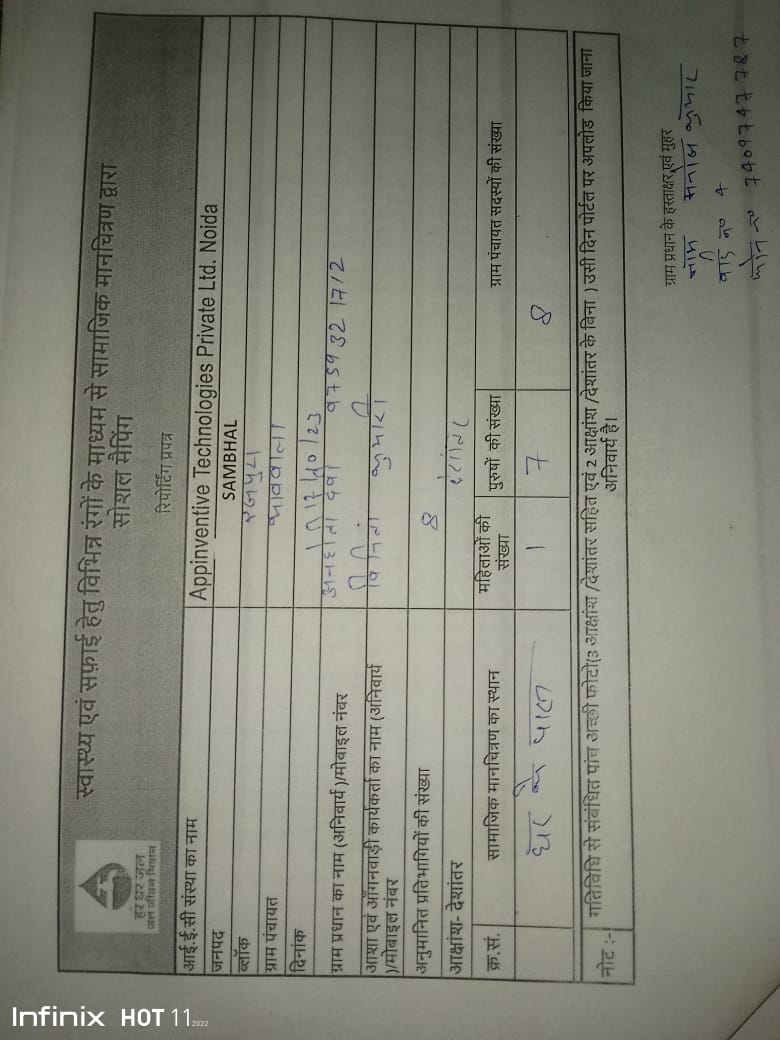 हर घर जल
जल जीवन मिशन
स्वास्थ्य एवं सफ़ाई हेतु विभिन्न रंगों के माध्यम से सामाजिक मानचित्रण द्वारा
सोशल मैपिंग
रिपोर्टिंग प्रपत्र
आई.ई.सी संस्था का नाम Appinventive Technologies Private Ltd. Noida
जनपद SAMBHAL
ब्लॉक रजपुरा
ग्राम पंचायत भाववाला
दिनांक
ग्राम प्रधान का नाम (अनिवार्य)/मोबाइल नंबर देवी 9759321712
आशा एवं ऑगनवाड़ी कार्यकर्ता का नाम (अनिवार्य
)/मोबाइल नंबर कुमारी
अनुमानित प्रतिभागियों की संख्या 8
आक्षांश- देशांतर
क्र.सं. सामाजिक मानचित्रण का स्थान महिलाओं की संख्या पुरुषों की संख्या ग्राम पंचायत सदस्यों की संख्या
घर के पास 1 7 8
नोट :- गतिविधि से संबंधित पांच अच्छी फोटो(3 आक्षांश /देशांतर सहित एवं 2 आक्षांश /देशांतर के बिना ) उसी दिन पोर्टल पर अपलोड किया जाना
अनिवार्य है।
ग्राम प्रधान के हस्ताक्षर एवं मुहर
नाम मनोज कुमार
वार्ड न० 4
फोन न०
Infinix HOT 11 2022